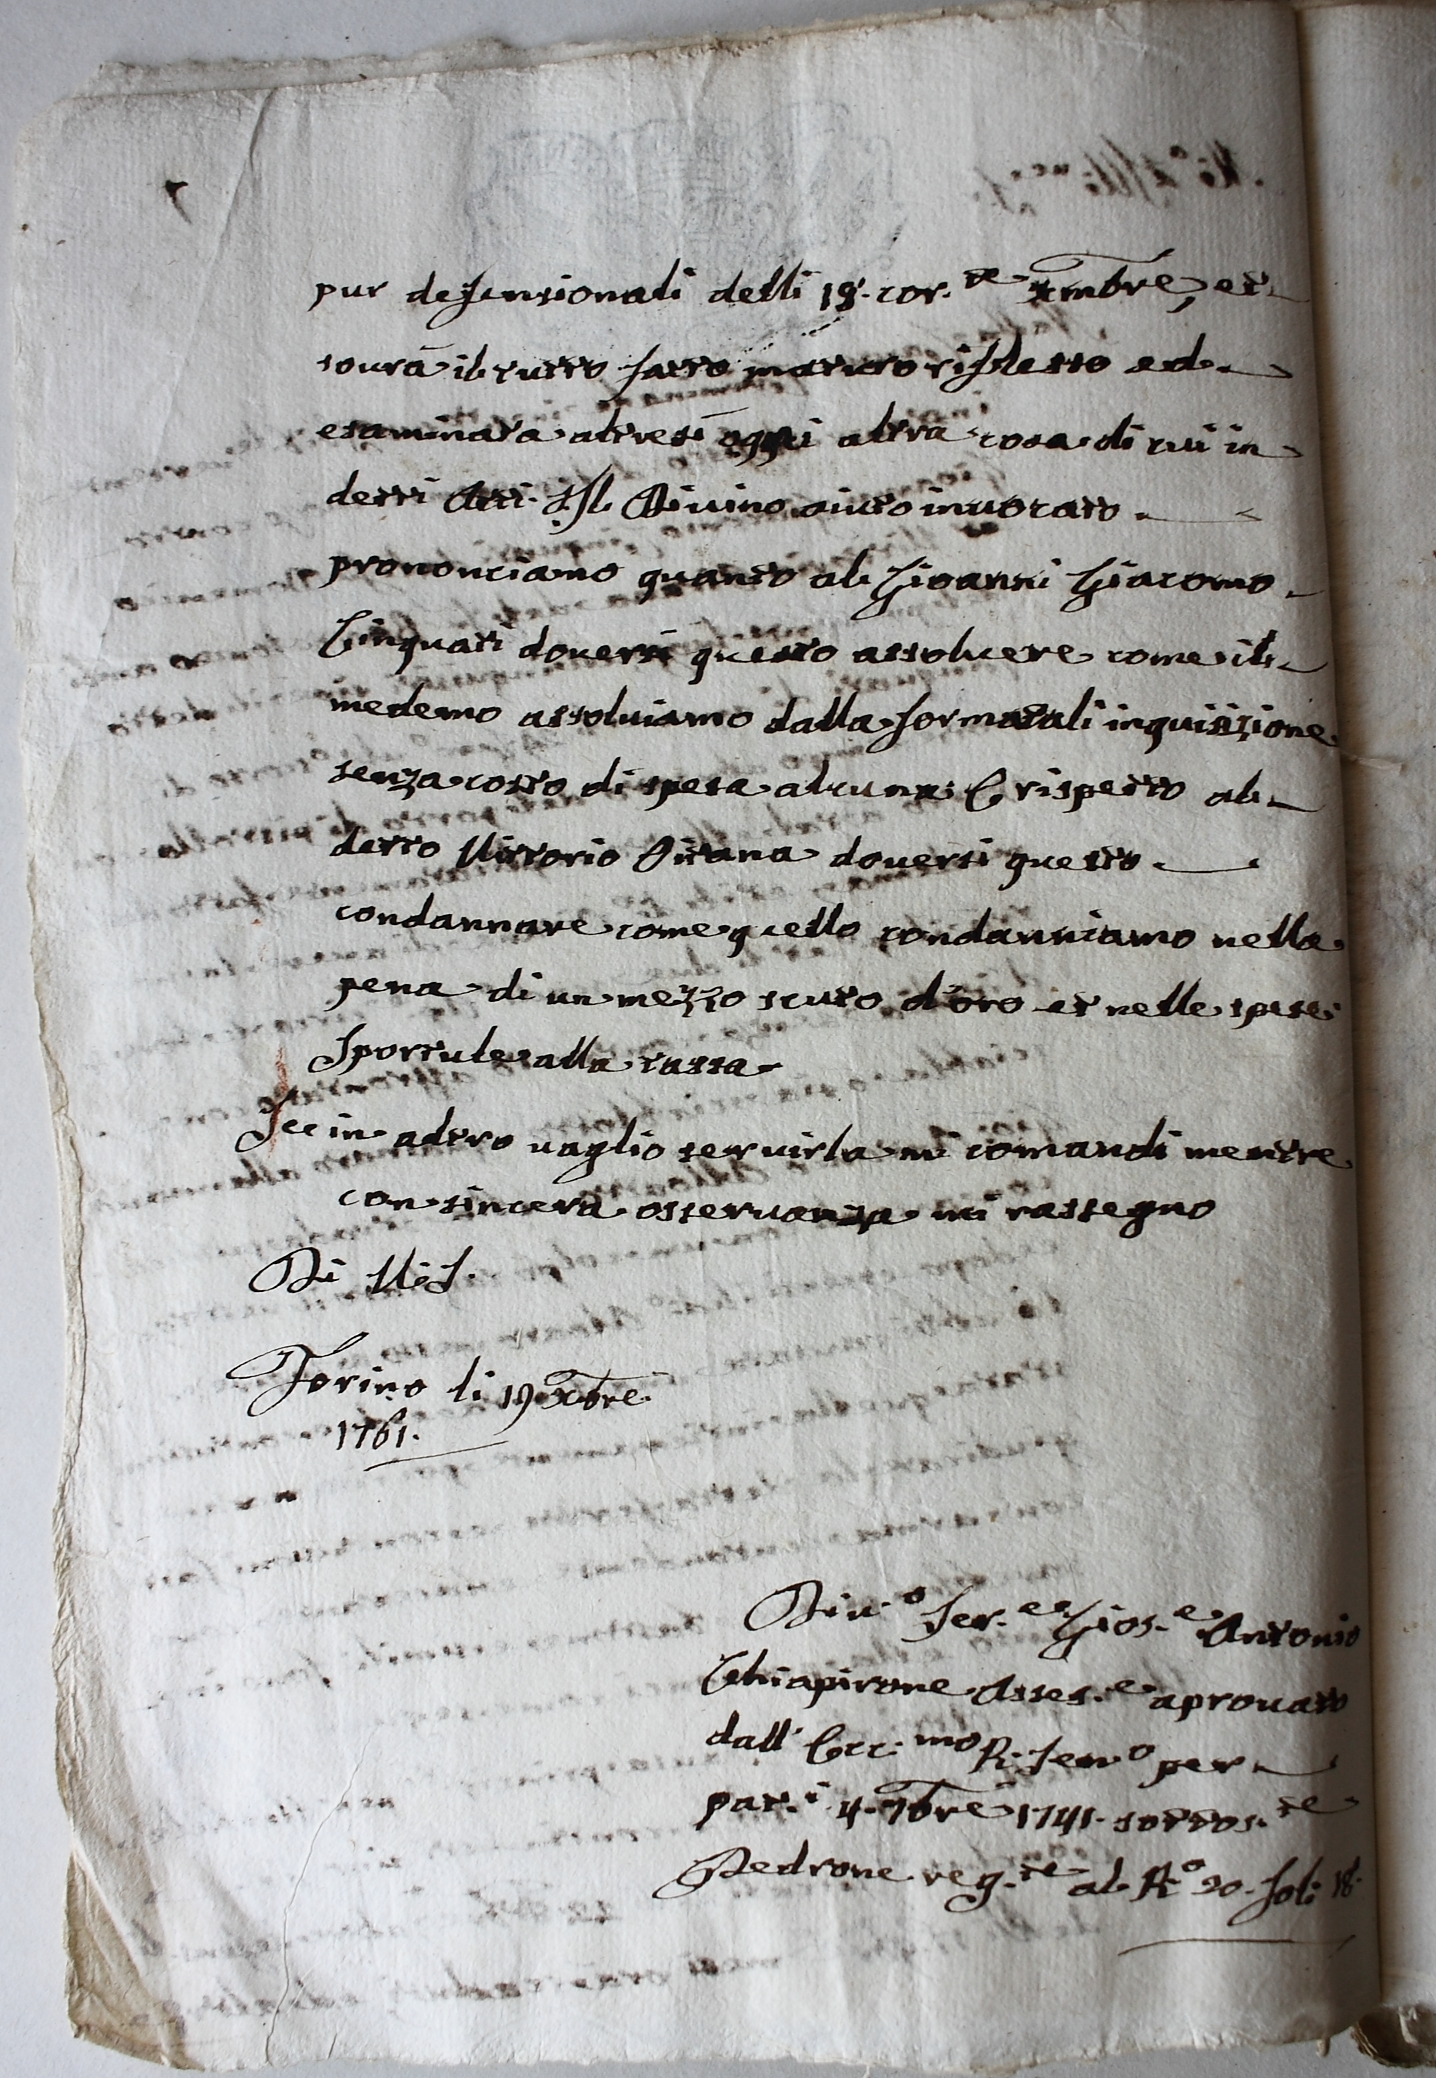 pur defensionali delli 18. cor.te Xmbre, et
sovrà il tutto fatto maturo riflesso ed
esaminata altresì ogni altra cosa di cui in
detti Atti. Il Divino aiuto invocato
prononciamo quanto al Gioanni Giacomo
Cinquati doversi questo assolvere come il
medemo assolviamo dalla formatali inquisizione
senza costo di spesa alcuna: E rispetto al
detto Vittorio Vitana doversi questo
condannare come quello condanniamo nella
pena di un mezzo scuto d'oro et nelle spese
sportule alla tassa
Se in altro vaglio servirla mi comandi mentre
con sincera osservanza mi rassegno
Di V.S.
Torino li 19 Xbre
1761.
Div.o Ser.e Gios.e Antonio
Chiapirone Asses.e aprovato
dall' Ecc.mo R. Sen.o per
pat.i 4. 7bre 1741. sottos.te
Pedrone reg.te al R.o 20. foli 18.